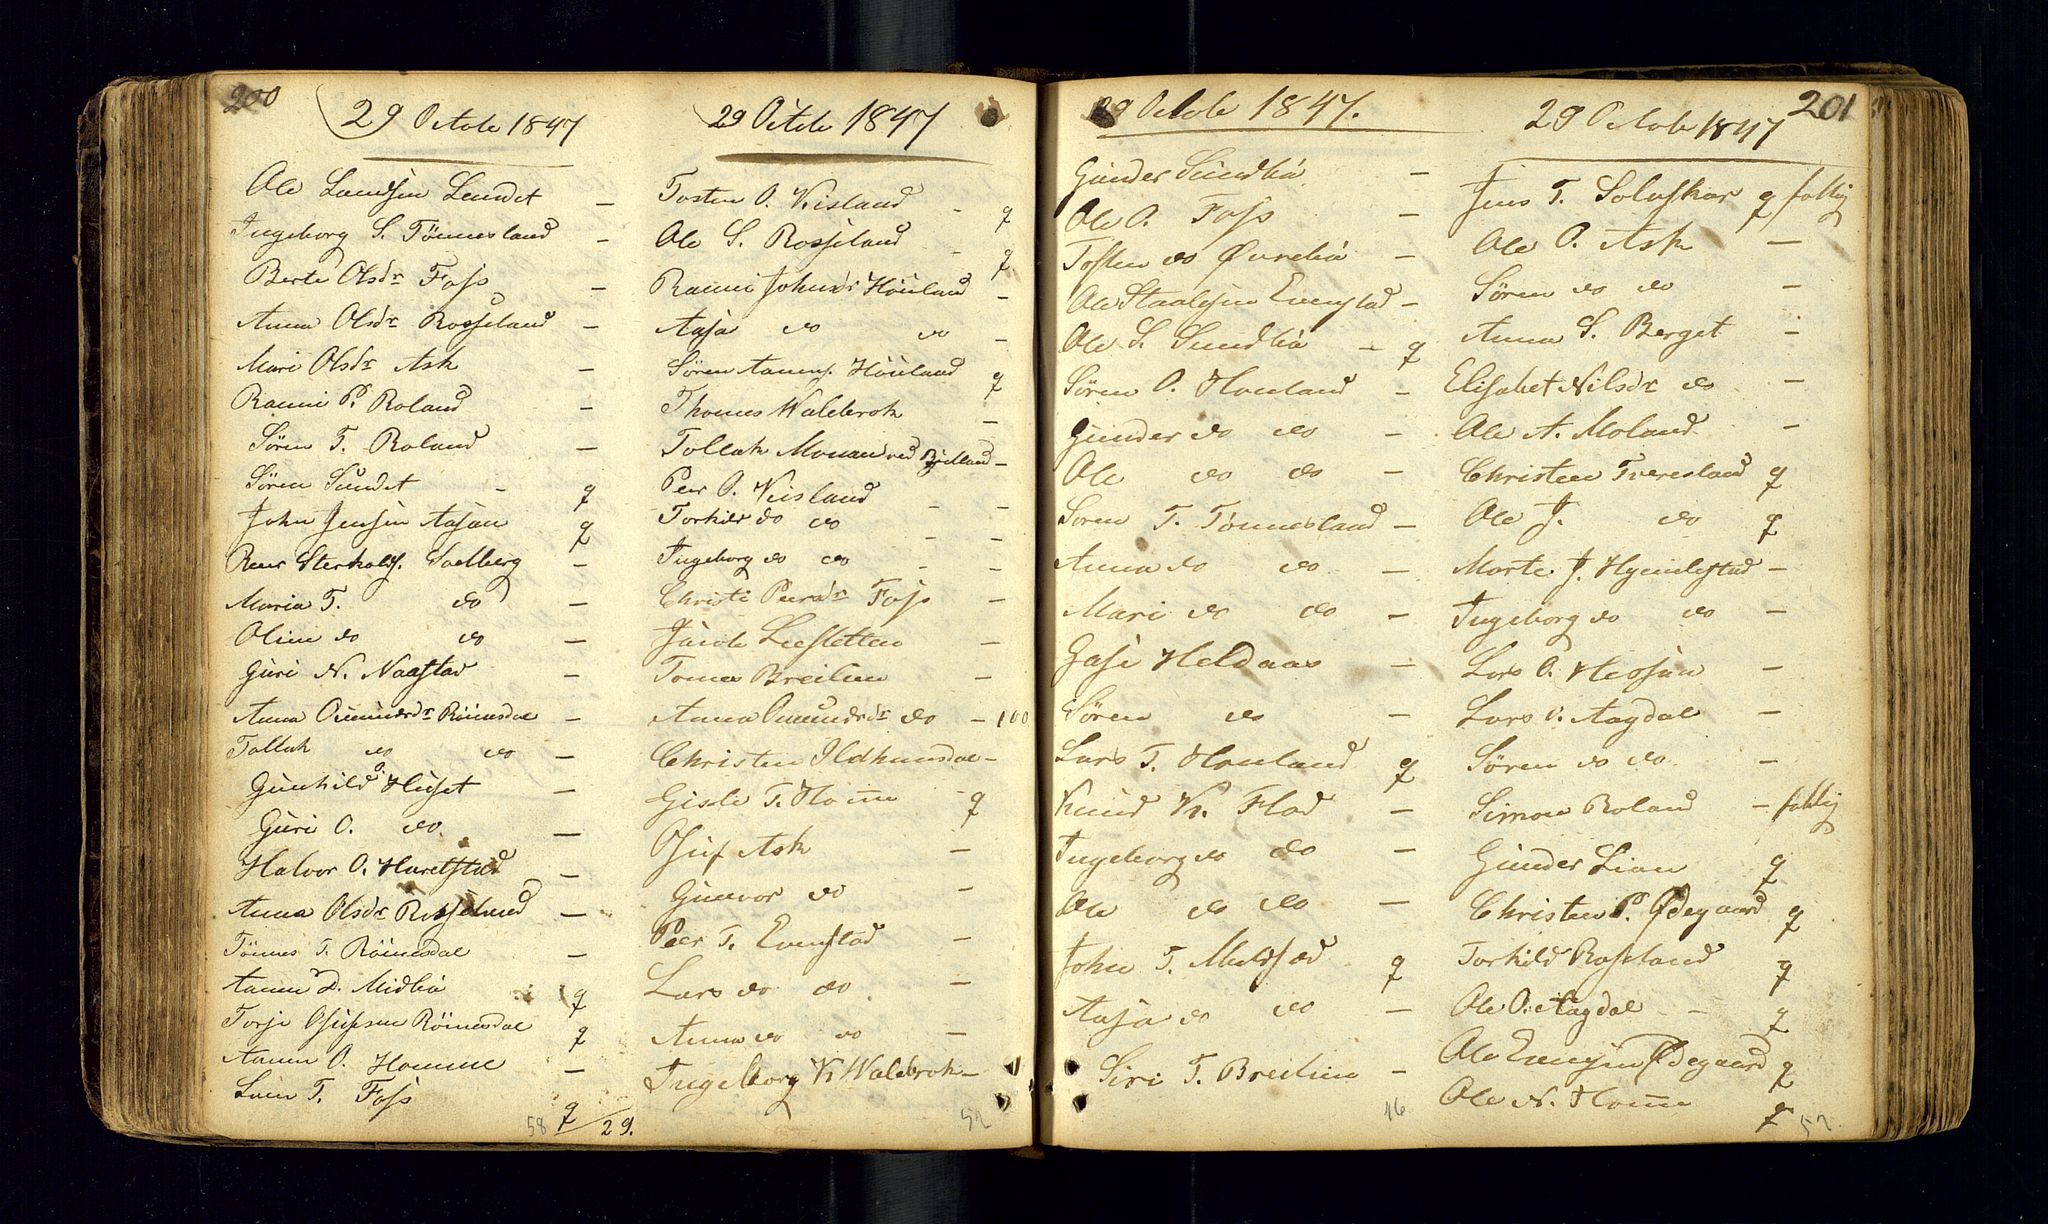 200
29 Octobr 1847
Ole Lundsen Lundet -
Ingeborg S. Tönnesland -
Berte Olsdr Foss -
Anna Olsdr Rosseland -
Mari Olsdr Ask -
Ranni P. Roland -
Sören T. Roland -
Sören Sundet - q
John Jensen Aasan q
Peer Sterkols. Solberg -
Maria T. do -
Oline do do -
Guri N. Naastad -
Anna Omundsdr Röinesdal -
Tallak do do -
Gunhild O. Huset -
Guri O. do -
Halvor O. Harestad -
Anna Olsdr Rosseland -
Tönnes T. Röinesdal -
Aanen D. Midbö q
Torje Osufsen Röinesdal q
Aanen O. Homme -
Sven T. Foss q
58 / 29.
29 Octobr 1847
Tosten O. Veisland - q
Ole S. Rosseland - q
Ranni Johnsdr Höiland -
Aasa do do -
Sören Aanens. Höiland q
Thomes Walebrok -
Tollak Monan ved Birkeland -
Peer O. Veisland - -
Torkild do do - -
Ingeborg do do - -
Christi Peersdr Foss -
Jacob Leesletten -
Tomes Breilien -
Anna Omundsdr do - 100
Christen Ildhunsdal -
Gisle T. Home - q
Osuf Ask -
Gunvor do -
Peer T. Evenstad -
Lars do do -
Anna do do -
Ingeborg K Walebrok -
52
29 Octobr 1847.
Gunder Sundbö -
Ole O. Foss -
Tosten do Övrebö -
Ole Staalesen Evenstad -
Ole S. Sundbö - q
Sören O. Houland -
Gunder do do -
Ole do do -
Soren T. Tönnesland -
Anna do do -
Mari do do -
Aase Heldaas -
Sören do -
Lars T. Houland q
Knud K. Flad -
Ingeborg do do -
Ole do do -
John T. Mebstad q
Aasa do do -
Siri T. Breilien -
46
201
29 Octobr 1847
Jens T. Solaskar q fattig
Ole O. Ask -
Sören do do -
Anna S. Berget -
Elisabet Nilsdr do -
Ole A. Moland -
Christen Tveresland q
Ole J. do q
Marte J. Hymlestad -
Ingeborg do do -
Lars O. Hessån -
Lars O. Aagdal -
Sören do do -
Simon Roland - fattig
Gunder Lian q
Christen P. Ödegaard q
Torkild Roseland q
Ole O. Aagdal - q
Ole Evensen Ödegaard q
Ole N. Home q
52.